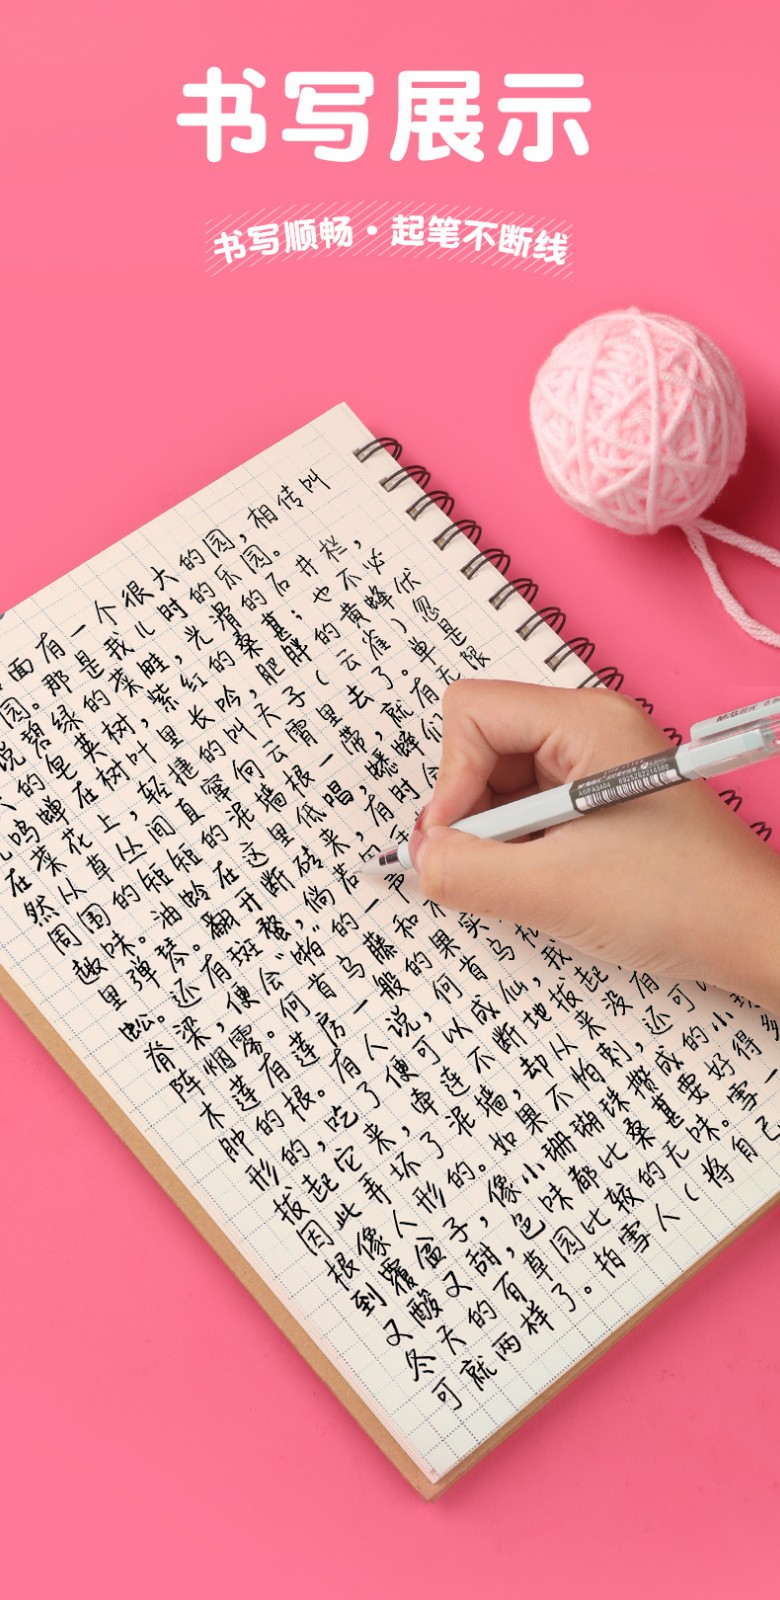 书写展示
书写顺畅·起笔不断线
面有一个很大的园，相传叫
园。那是我儿时的乐园。
说碧绿的菜畦，光滑的石井栏，
的皂荚树，紫红的桑葚；也不必
鸣蝉在树叶里长吟，肥胖的黄蜂伏
在菜花上，轻捷的叫天子（云雀）忽
然从草丛间直窜向云霄里去了。单是
周围的短短的泥墙根一带，就有无限
趣味。油蛉在这里低唱，蟋蟀们
里弹琴。翻开断砖来，有时会
蚣。还有斑蝥，倘若
脊梁，便会“啪”的一声
阵烟雾。何首乌藤和木
木莲有莲房一般的果实
肿的根。有人说，何首乌
形的，吃了便可以成仙，我
拔起它来，牵连不断地拔起
因此弄坏了泥墙，却从来没有
根像人形的。如果不怕刺，还可
到覆盆子，像小珊瑚珠攒成的小
又酸又甜，色味都比桑葚要好得
冬天的百草园比较的无味。雪一
可就两样了。拍雪人（将自己
M&G
AGPA0404